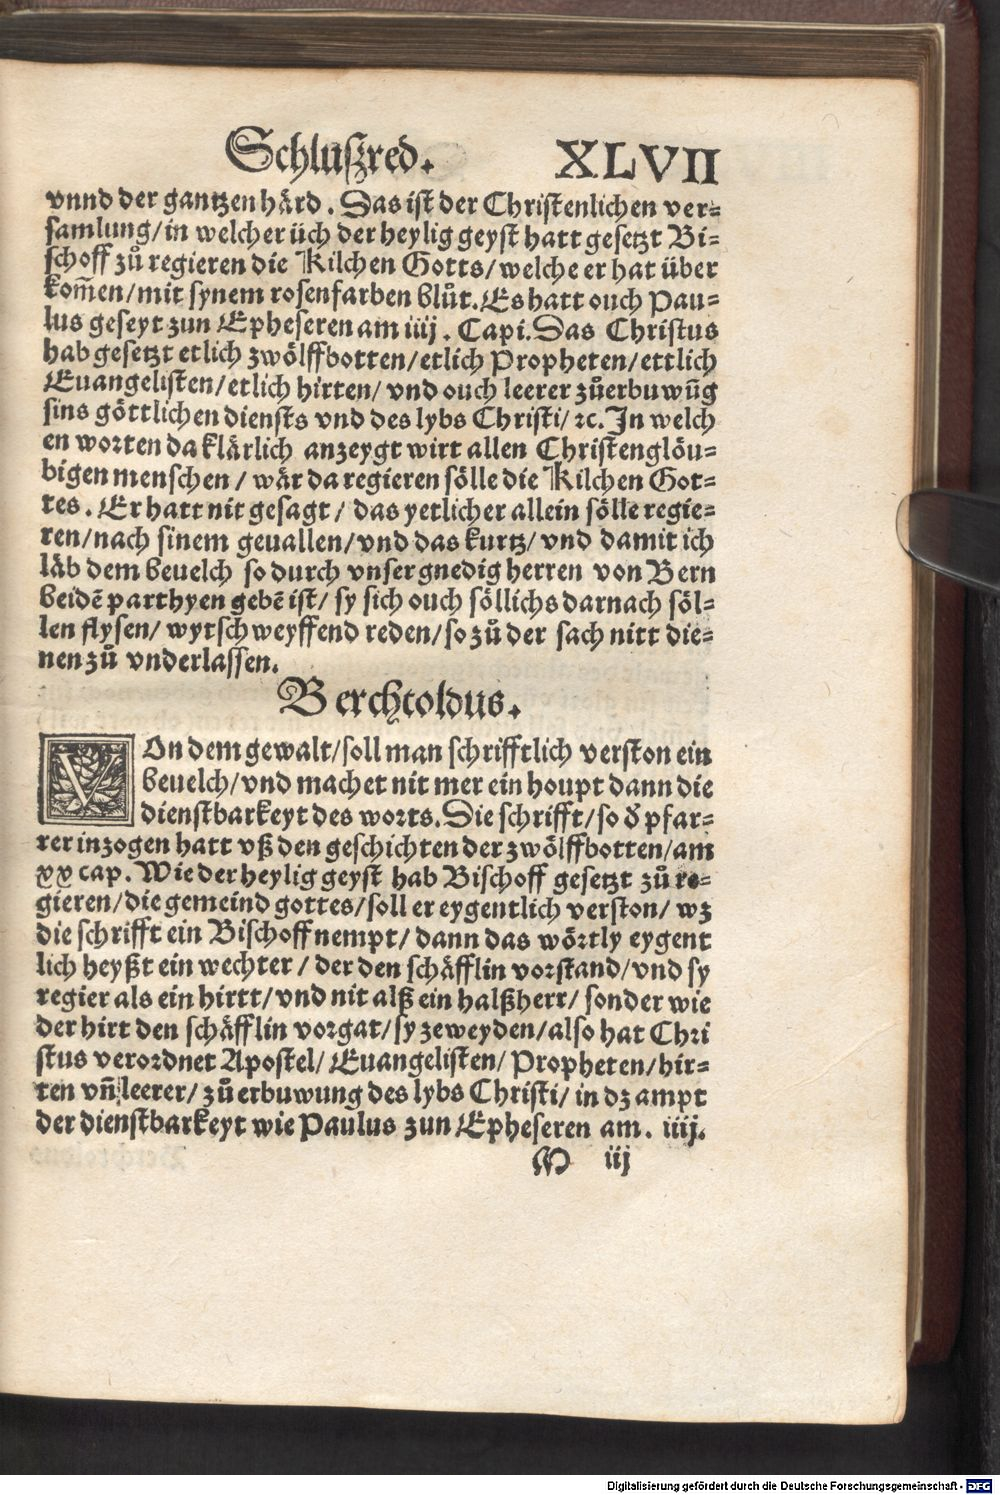 Schlußred. XLVII
vnnd der gantzen härd. Das ist der Christenlichen ver⸗
samlung/ in welcher üch der heylig geyst hatt gesetzt Bi⸗
schoff zů regieren die Kilchen Gotts/ welche er hat über
kom̄en/ mit synem rosenfarben blůt. Es hatt ouch Pau⸗
lus geseyt zun Epheseren am iiij. Capi. Das Christus
hab gesetzt etlich zwölffbotten/ etlich Propheten/ ettlich
Euangelisten/ etlich hirten/ vnd ouch leerer zůerbuwūg
sins göttlichen diensts vnd des lybs Christi/ ꝛc. In welch
en worten da klärlich anzeygt wirt allen Christenglöu⸗
bigen menschen/ wär da regieren sölle die Kilchen Got⸗
tes. Er hatt nit gesagt/ das yetlicher allein sölle regie⸗
ren/ nach sinem geuallen/ vnd das kurtz/ vnd damit ich
läb dem beuelch so durch vnser gnedig herren von Bern
beidē parthyen gebē ist/ sy sich ouch söllichs darnach söl⸗
len flysen/ wytschweyffend reden/ so zů der sach nitt die⸗
nen zů vnderlassen.
Berchtoldus.
VOn dem gewalt/ soll man schrifftlich verston ein
beuelch/ vnd machet nit mer ein houpt dann die
dienstbarkeyt des worts. Die schrifft/ so d̕ pfar⸗
rer inzogen hatt vß den geschichten der zwölffbotten/ am
xx cap. Wie der heylig geyst hab Bischoff gesetzt zů re⸗
gieren/ die gemeind gottes/ soll er eygentlich verston/ wz
die schrifft ein Bischoff nempt/ dann das wörtly eygent
lich heyßt ein wechter/ der den schäfflin vorstand/ vnd sy
regier als ein hirtt/ vnd nit alß ein halßherr/ sonder wie
der hirt den schäfflin vorgat/ sy zeweyden/ also hat Chri
stus verordnet Apostel/ Euangelisten/ Propheten/ hir⸗
ten vñ leerer/ zů erbuwung des lybs Christi/ in dz ampt
der dienstbarkeyt wie Paulus zun Epheseren am. iiij.
M iij
Digitalisierung gefördert durch die Deutsche Forschungsgemeinschaft - DFG